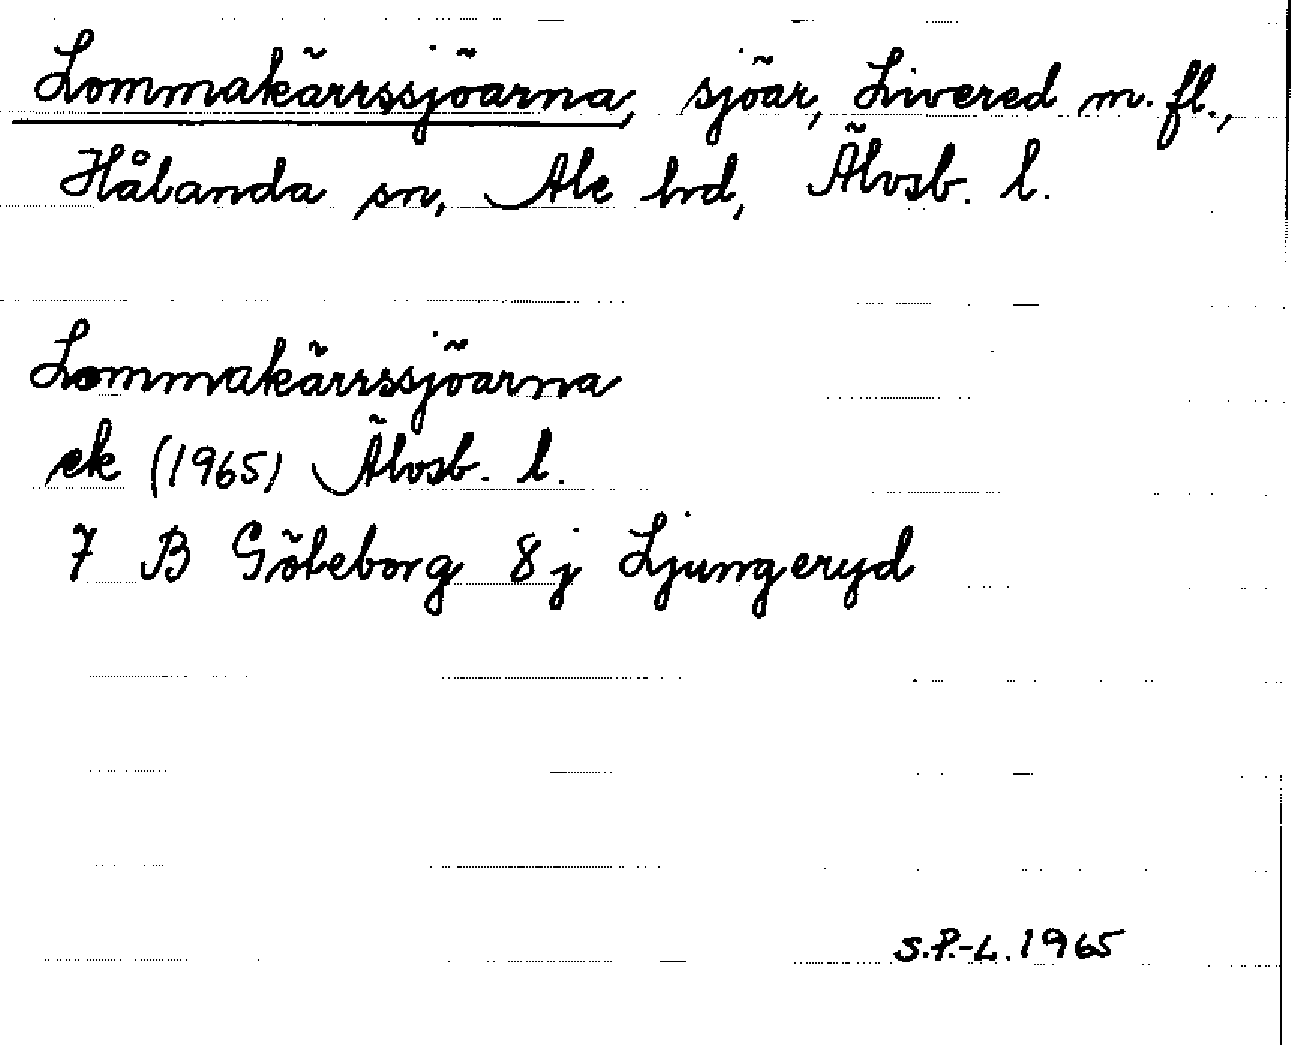 Lommakärrssjöarna, sjöar, Livered m. fl.,
Hålanda sn, Ale hd, Älvsb. l.
Lommakärrssjöarna
ek (1965) Älvsb. l.
7 B Göteborg 8 j Ljungeryd
S.P.-L. 1965